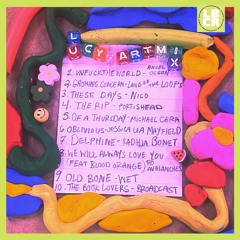 LUCY ART MIX
1. UNFUCKTHEWORLD - ANGEL OLSEN
2. GROWING CONCERN - LOVE OF THE LOOPS
3. THESE DAYS - NICO
4. THE RIP - PORTISHEAD
5. OF A THURSDAY - MICHAEL CERA
6. OBLIVIOUS - JESSICA LEA MAYFIELD
7. DELPHINE - KADHJA BONET
8. WE WILL ALWAYS LOVE YOU
(FEAT BLOOD ORANGE) - THE AVALANCHES
9. OLD BONE - WET
10. THE BOOK LOVERS - BROADCAST